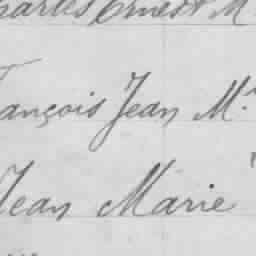 harles Ernest M
ançois Jean M.
Jean Marie